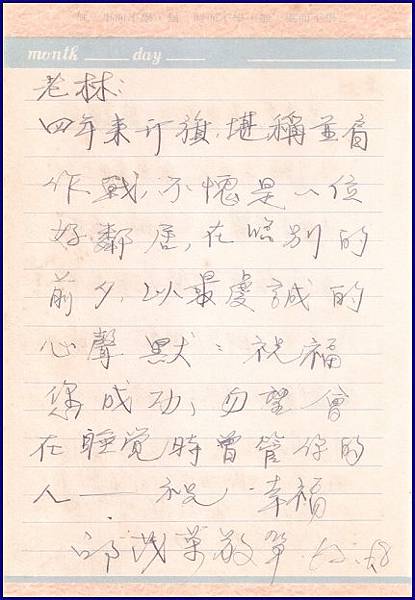 month day
老林:
四年来 旗,堪稱並肩
作戰,不愧是一位
好鄰居,在臨別的
前夕,以最虔誠的
心聲默:祝福
您成功,勿望會
在睡觉時曾管你的
人——祝.幸福
邱茂 敬筆